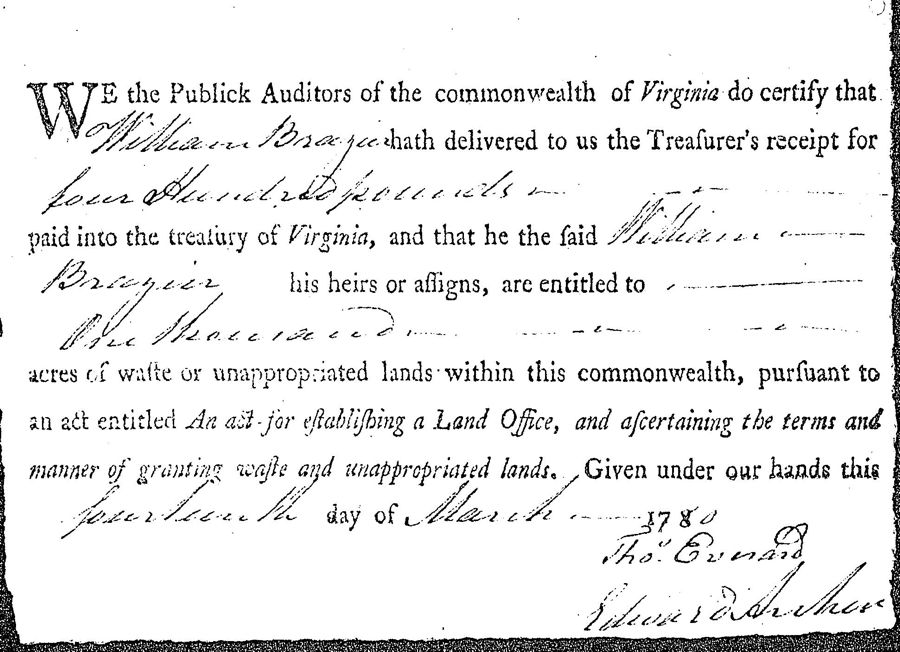 WE the Publick Auditors of the commonwealth of Virginia do certify that
William Brazier hath delivered to us the Treaſurer's receipt for
four Hundred pounds
paid into the treaſury of Virginia, and that he the ſaid William
Brazier his heirs or aſſigns, are entitled to
One thousand
acres of waſte or unappropriated lands within this commonwealth, purſuant to
an act entitled An act for eſtabliſhing a Land Office, and aſcertaining the terms and
manner of granting waſte and unappropriated lands. Given under our hands this
fourteenth day of March 1780
Thos. Everard
Edward Archer